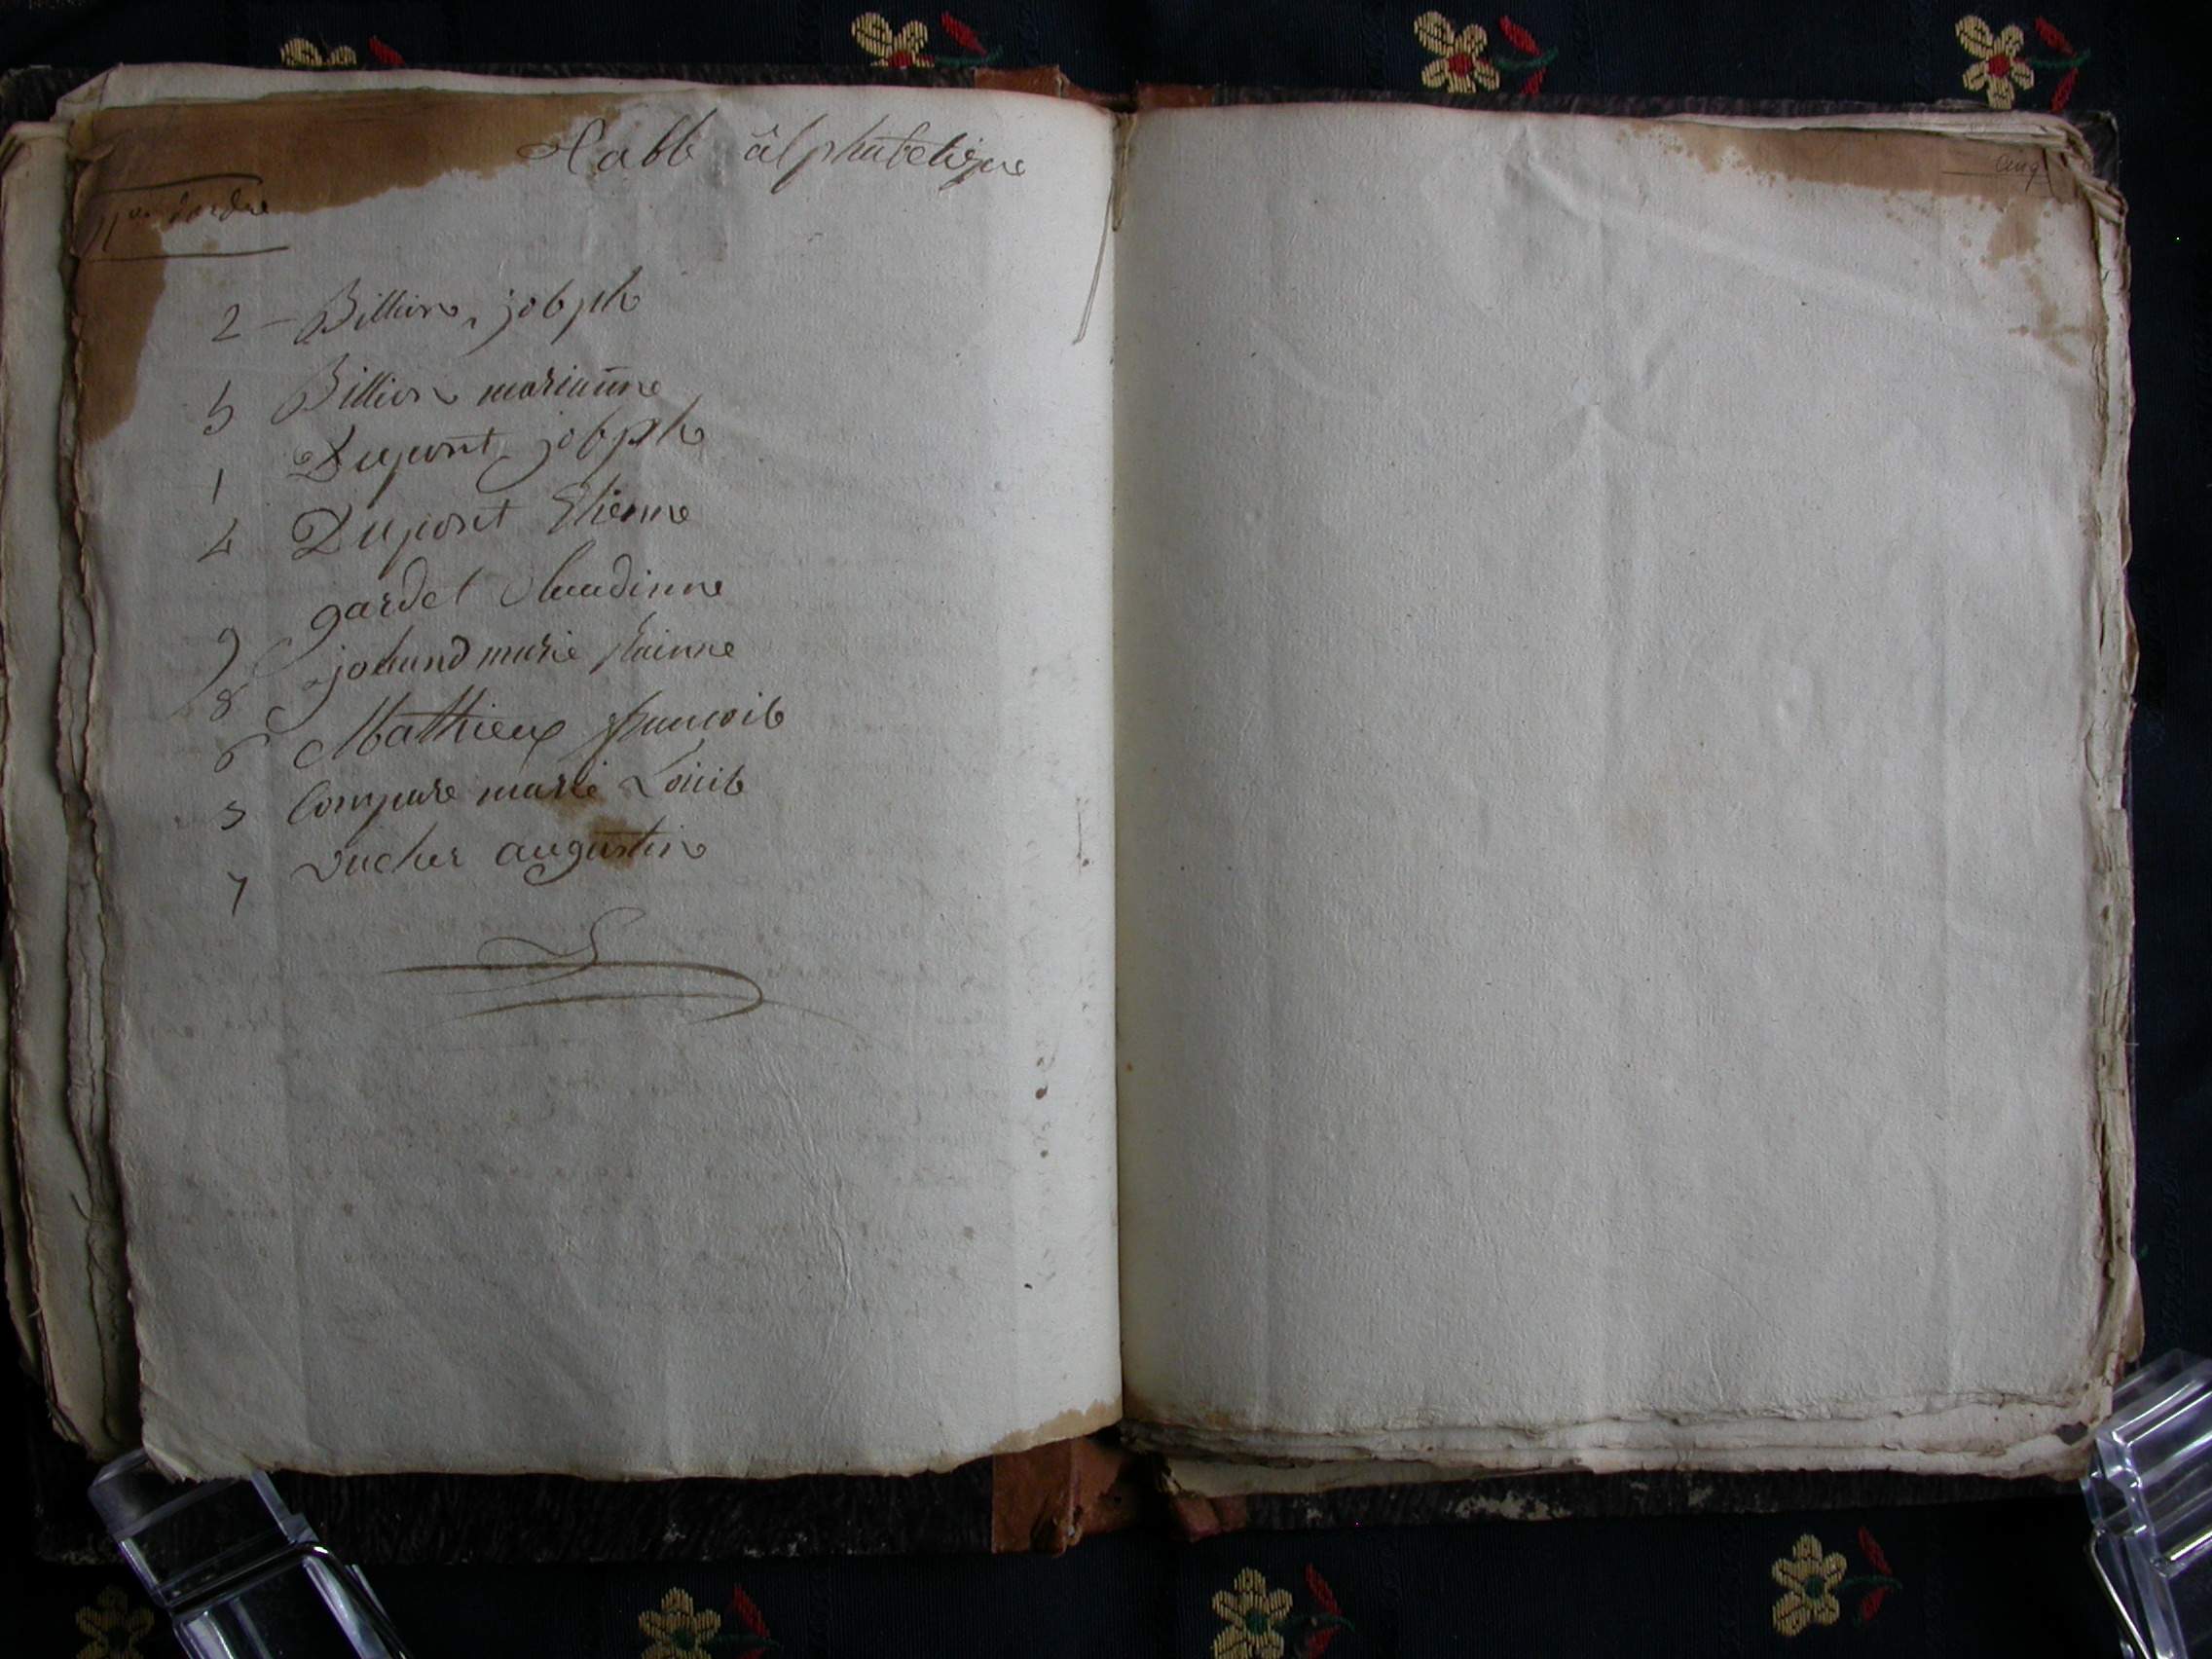 Table âlphabetique
Nos dordre
2 – Billion, joseph
3 Billion marianne
1 Dupont joseph
4 Dupont Etienne
9 gardet Claudinne
8 marie
6 Mathieux francois
5 Compare marie Louis
7 vucher augustin
cinq